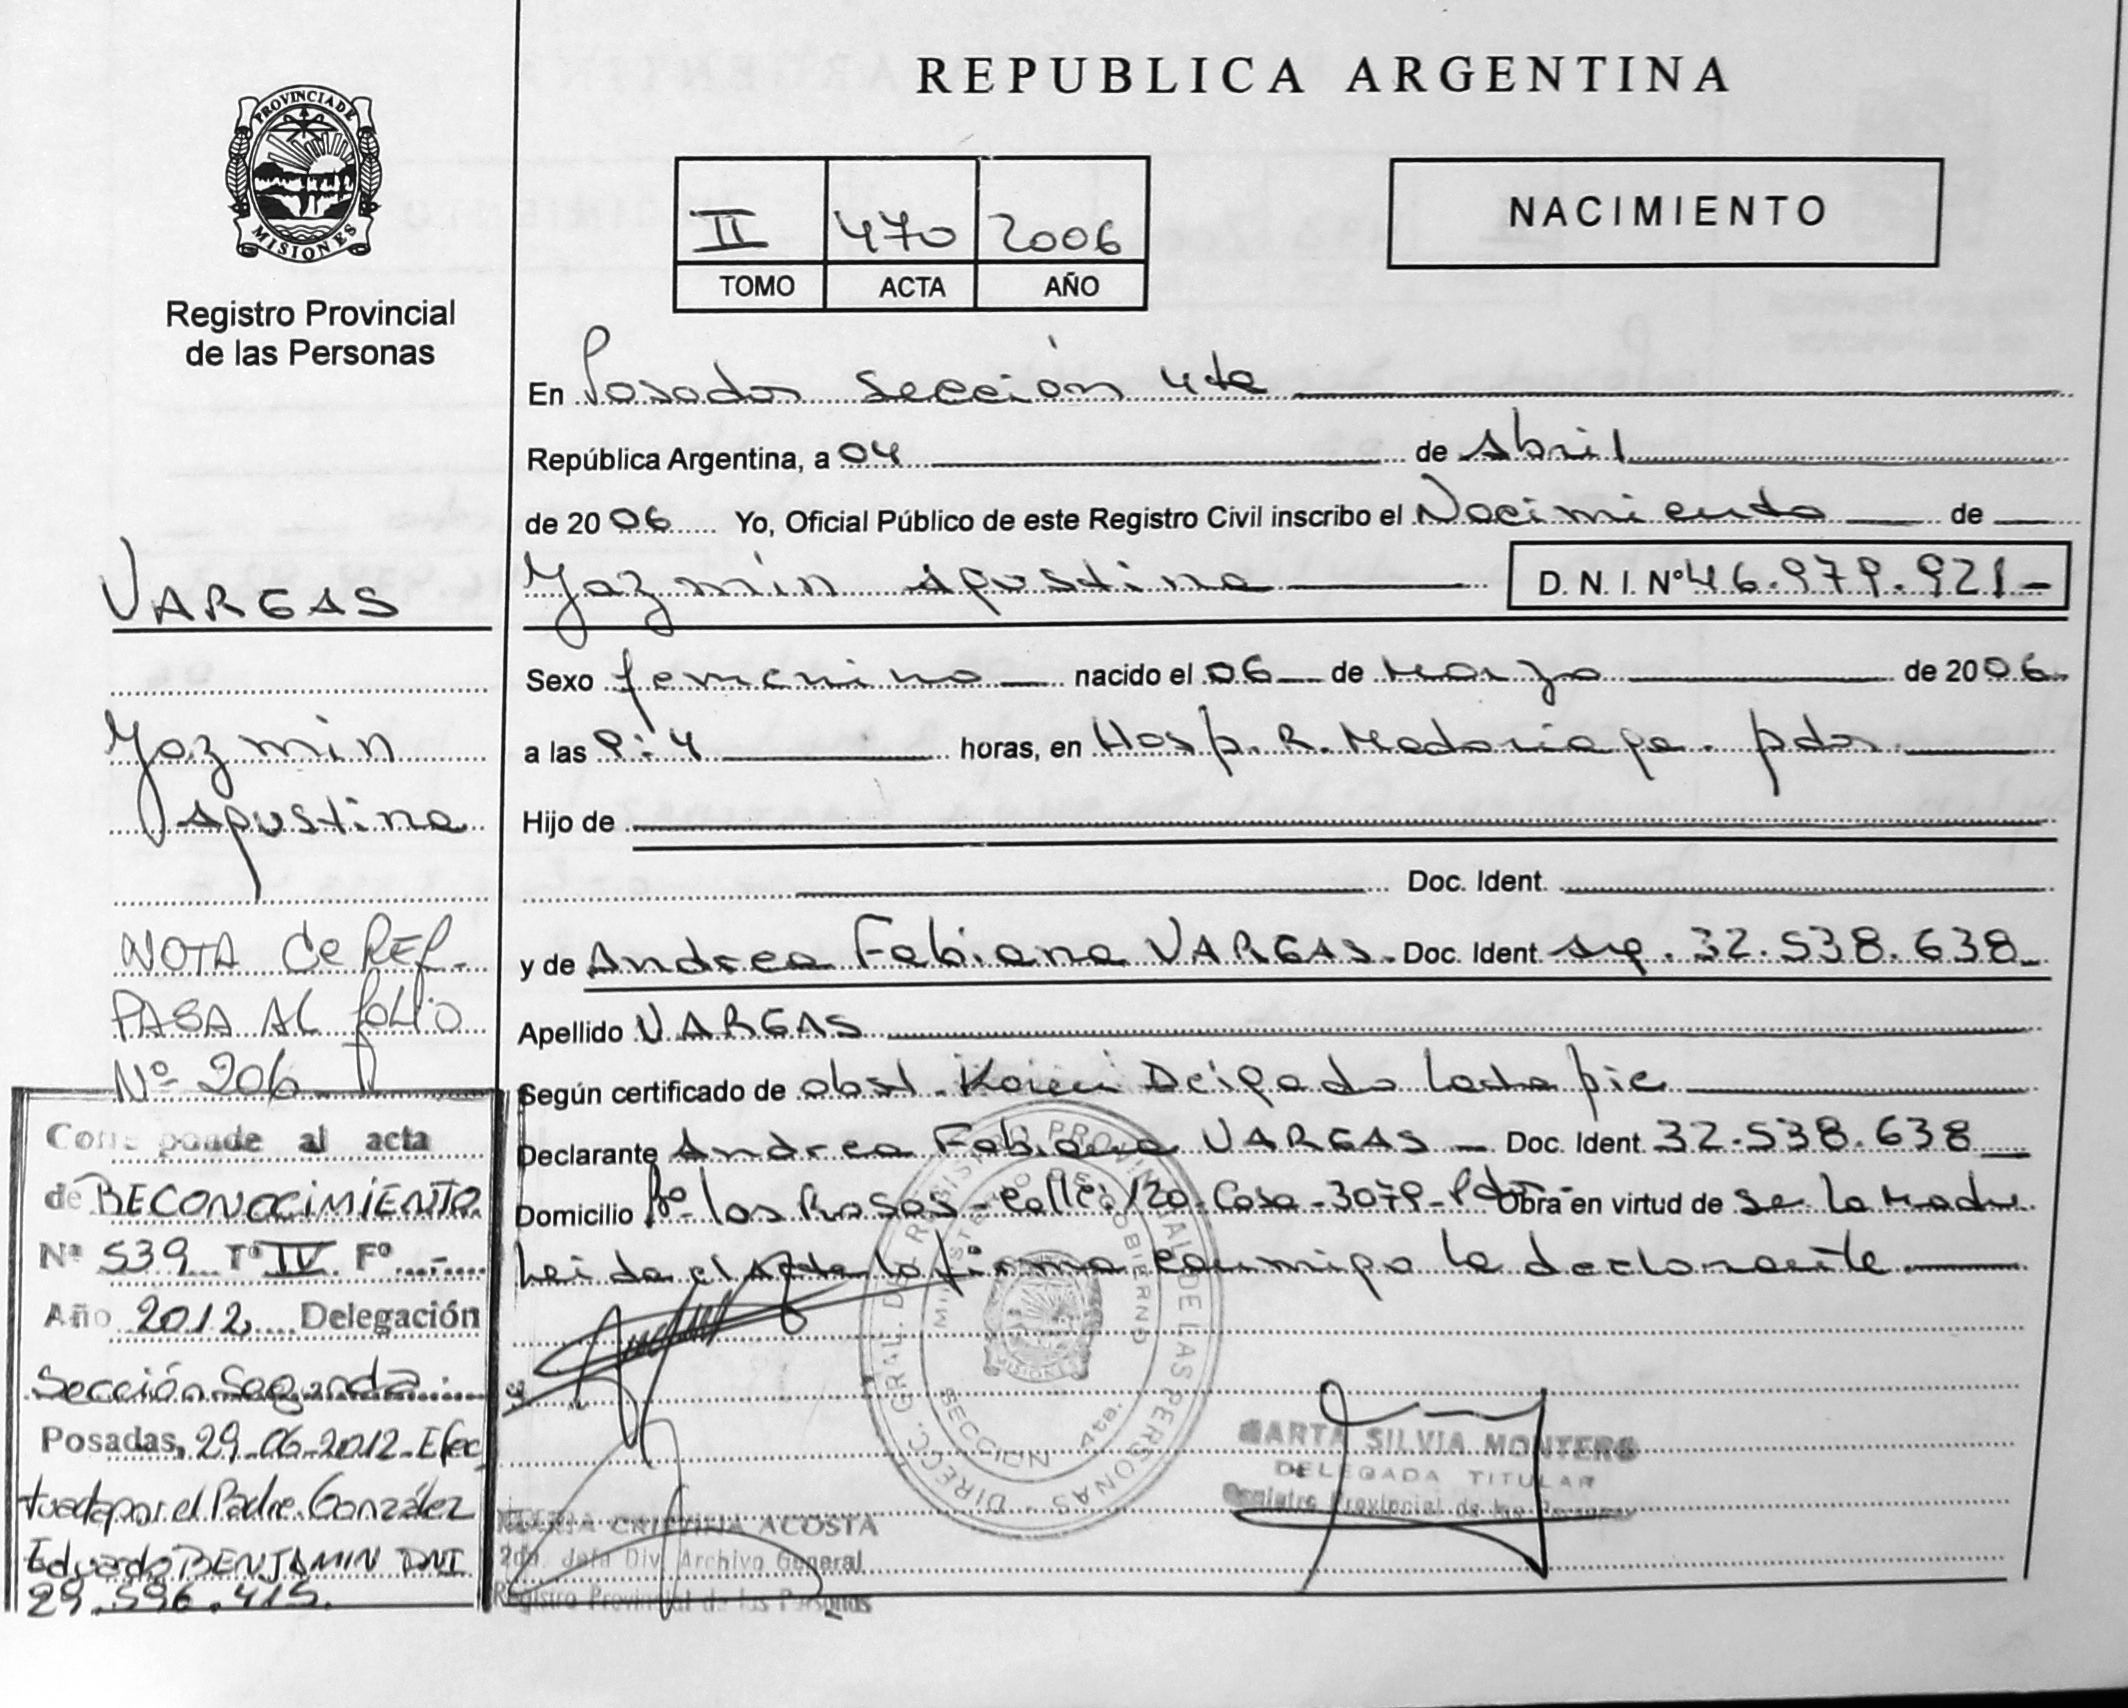 REPUBLICA ARGENTINA
PROVINCIA DE
MISIONES
Registro Provincial
de las Personas
II 470 2006
TOMO ACTA AÑO
NACIMIENTO
En Posadas Sección 4ta
República Argentina, a 04 de Abril
de 2006 Yo, Oficial Público de este Registro Civil inscribo el Nacimiento de
Yazmin Agustina D. N. I. Nº 46.979.921-
Sexo femenino nacido el 06 de Marzo de 2006
a las 9:4 horas, en Hosp. R. Madariaga. pdas.
Hijo de
Doc. Ident.
y de Andrea Fabiana VARGAS. Doc. Ident. Arg. 32.538.638
Apellido VARGAS
Según certificado de obst. Delgado
Declarante Andrea Fabiana VARGAS Doc. Ident. 32.538.638
Domicilio Bº los Rosas - Calle: 120 - Casa - 3079 - Pdas Obra en virtud de Se la Madre
Leida el Acta la firma conmigo la declarante.
VARGAS
Yazmin
Agustina
NOTA de REF.
PASA AL folio
Nº 206
Corresponde al acta
de RECONOCIMIENTO
Nº 539 Tº IV Fº -
Año 2012 Delegación
Sección Segunda
Posadas, 29-06-2012-Efec
tuada por el Padre González
Eduardo BENJAMIN DNI
29.596.415.
DIRECC. GRAL. DEL REGISTRO PROVINCIAL DE LAS PERSONAS
MINISTERIO DE GOBIERNO
MISIONES
SECCION 4ta.
MARTA SILVIA MONTERO
DELEGADA TITULAR
Registro Provincial de las Personas
MARIA CRISTINA ACOSTA
2da. Jefa Div. Archivo General
Registro Provincial de las Personas